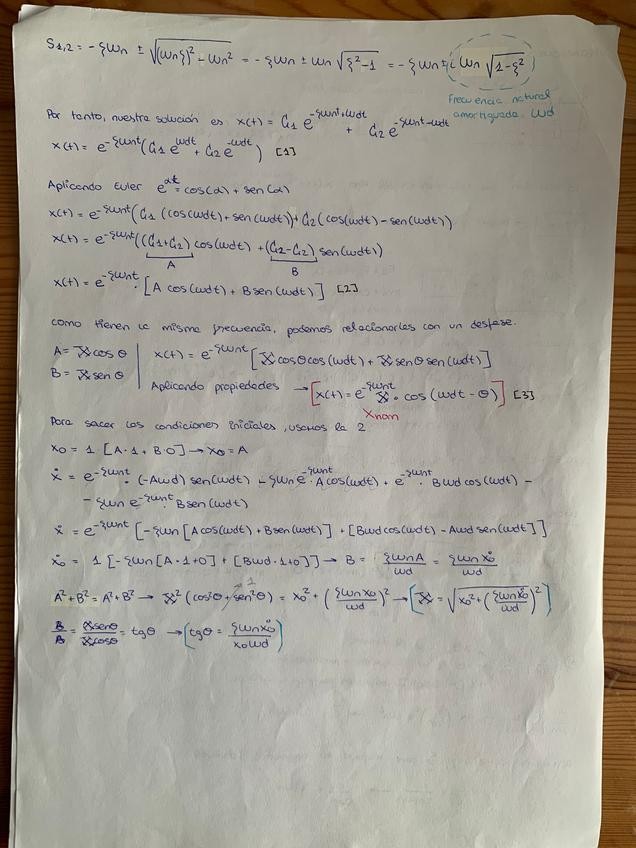 S1,2 = -ξωn ± √((ωnξ)² - ωn²) = -ξωn ± ωn √(ξ²-1) = -ξωn ± i ωn √(1-ξ²)
Frecuencia natural
amortiguada. ωd
Por tanto, nuestra solución es x(t) = C1 e^(-ξωnt+ωdt) + C2 e^(-ξωnt-ωdt)
x(t) = e^(-ξωnt) (C1 e^(ωdt) + C2 e^(-ωdt)) [1]
Aplicando Euler e^(αt) = cos(α) + sen(α)
x(t) = e^(-ξωnt) (C1 (cos(ωdt) + sen(ωdt)) + C2 (cos(ωdt) - sen(ωdt))
x(t) = e^(-ξωnt) ((C1+C2) cos(ωdt) + (C1-C2) sen(ωdt))
A B
x(t) = e^(-ξωnt) · [A cos(ωdt) + B sen(ωdt)] [2]
como tienen la misma frecuencia, podemos relacionarles con un desfase.
A = X cos θ | x(t) = e^(-ξωnt) [X cosθ cos(ωdt) + X senθ sen(ωdt)]
B = X sen θ | Aplicando propiedades → [x(t) = e^(-ξωnt) X · cos(ωdt - θ)] [3]
Xnom
Para sacar las condiciones iniciales, usamos la 2
x0 = 1 · [A·1 + B·0] → x0 = A
ẋ = e^(-ξωnt) · (-Aωd) sen(ωdt) - ξωn e^(-ξωnt) · A cos(ωdt) + e^(-ξωnt) · Bωd cos(ωdt) -
- ξωn e^(-ξωnt) · B sen(ωdt)
ẋ = e^(-ξωnt) [-ξωn [A cos(ωdt) + B sen(ωdt)] + [Bωd cos(ωdt) - Aωd sen(ωdt)]]
ẋ0 = 1 [-ξωn [A·1+0] + [Bωd·1+0]] → B = ξωnA/ωd = ξωnẋ0/ωd
A² + B² = A² + B² → X² (cos²θ + sen²θ) = x0² + (ξωnx0/ωd)² → [X = √(x0² + (ξωnẋ0/ωd)²)]
1
B/A = X senθ/X cosθ = tgθ → (tgθ = ξωnẋ0/x0ωd)